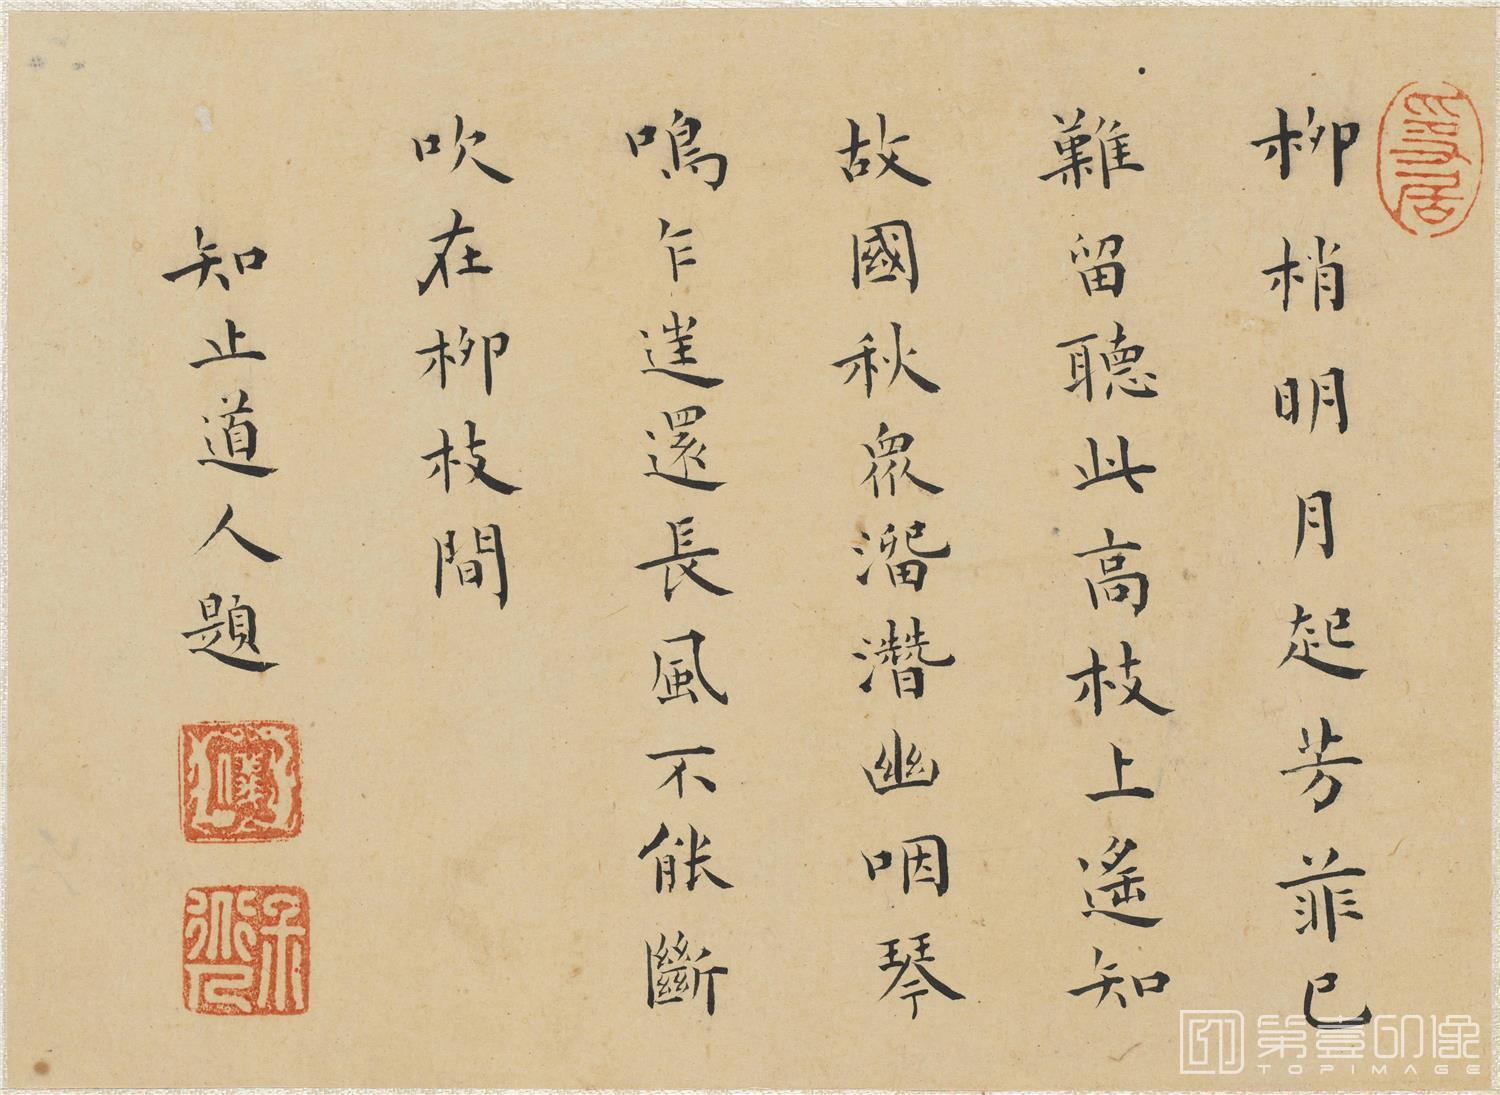 柳梢明月起芳菲已
難留聽此高枝上遙知
故國秋眾溜潛幽咽琴
鳴乍迷還長風不能斷
吹在柳枝間
知止道人題
第壹印像
TOPIMAGE